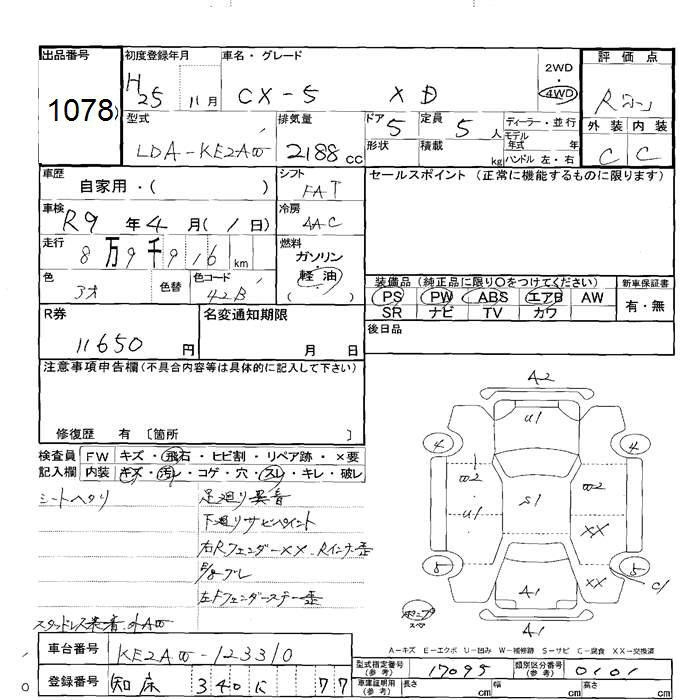 出品番号
1078
初度登録年月
H25 11月
車名・グレード
CX-5 XD
2WD
・
4WD
評価点
外装 内装
C C
型式
LDA-KE2AW
排気量
2188 cc
ドア 5
定員 5 人
形状
積載 kg
ディーラー・並行
モデル
年式 年
ハンドル 左・右
車歴
自家用・( )
シフト
FAT
車検
R9 年 4 月 (1日)
冷房
AAC
走行
8万9千916 km
燃料
ガソリン
軽油
( )
色
アオ
色替
色コード
42B
セールスポイント (正常に機能するものに限ります)
装備品 (純正品に限り○をつけてください)
PS PW ABS エアB AW
SR ナビ TV カワ
新車保証書
有・無
後日品
R券
11650 円
名変通知期限
月 日
注意事項申告欄(不具合内容等は具体的に記入して下さい)
修復歴 有 〔箇所 〕
検査員
記入欄
FW キズ・飛石・ヒビ割・リペア跡・×要
内装 キズ・汚れ・コゲ・穴・スレ・キレ・破レ
シートヘタリ
足廻り異音
下廻りサビペイント
右RフェンダーXX.Rインナー歪
左Fフェンダーステー歪
スタッドレス装着.外AW
A2
U1
4
4
W2
U1
S1
W2
XX
XX
5
5
A1
C1
A1
スペア
A-キズ E-エクボ U-凹み W-補修跡 S-サビ C-腐食 XX-交換済
車台番号
KE2AW-123310
登録番号
知床 340 に 77
型式指定番号
(参考)
17095
類別区分番号
(参考)
0101
車庫証明用
(参考)
長さ cm
幅 cm
高さ cm